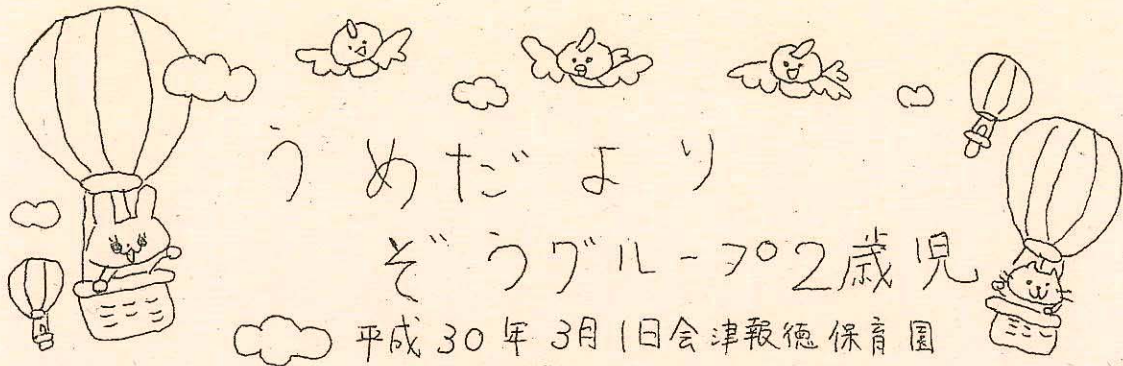 うめだより
ぞうグループ2歳児
平成30年3月1日会津報徳保育園